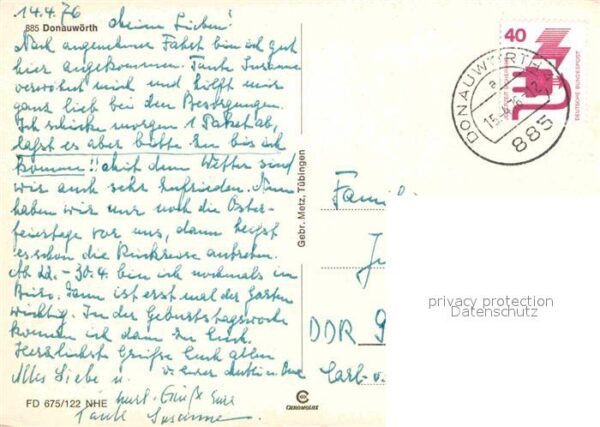 14.4.76
Meine Lieben!
885 Donauwörth
Nach angenehmer Fahrt bin ich gut
hier angekommen. Tante Susanne
verwöhnt mich und hilft mir
ganz lieb bei den Besorgungen.
Ich schicke morgen 1 Paket ab,
laßt es aber bitte zu bis ich
komme!! Mit dem Wetter sind
wir auch sehr zufrieden. Nun
haben wir nur noch die Oster-
feiertage vor uns, dann heißt
es schon die Rückreise antreten.
Ab 22.-30.4. bin ich nochmals im
Büro. Dann ist erst mal der Garten
wichtig. In der Geburtstagswoche
komme ich dann zu Euch.
Herzlichst Grüße Euch allen
Alles Liebe u. v. Eurer
Gruß Eure
Tante Susanne
FD 675/122 NHE
CHROMOLUX
Gebr. Metz, Tübingen
40
DEUTSCHE BUNDESPOST
DONAUWÖRTH
a
15.-4.76-12
885
Famil
DDR 9
Carl-v.
privacy protection
Datenschutz